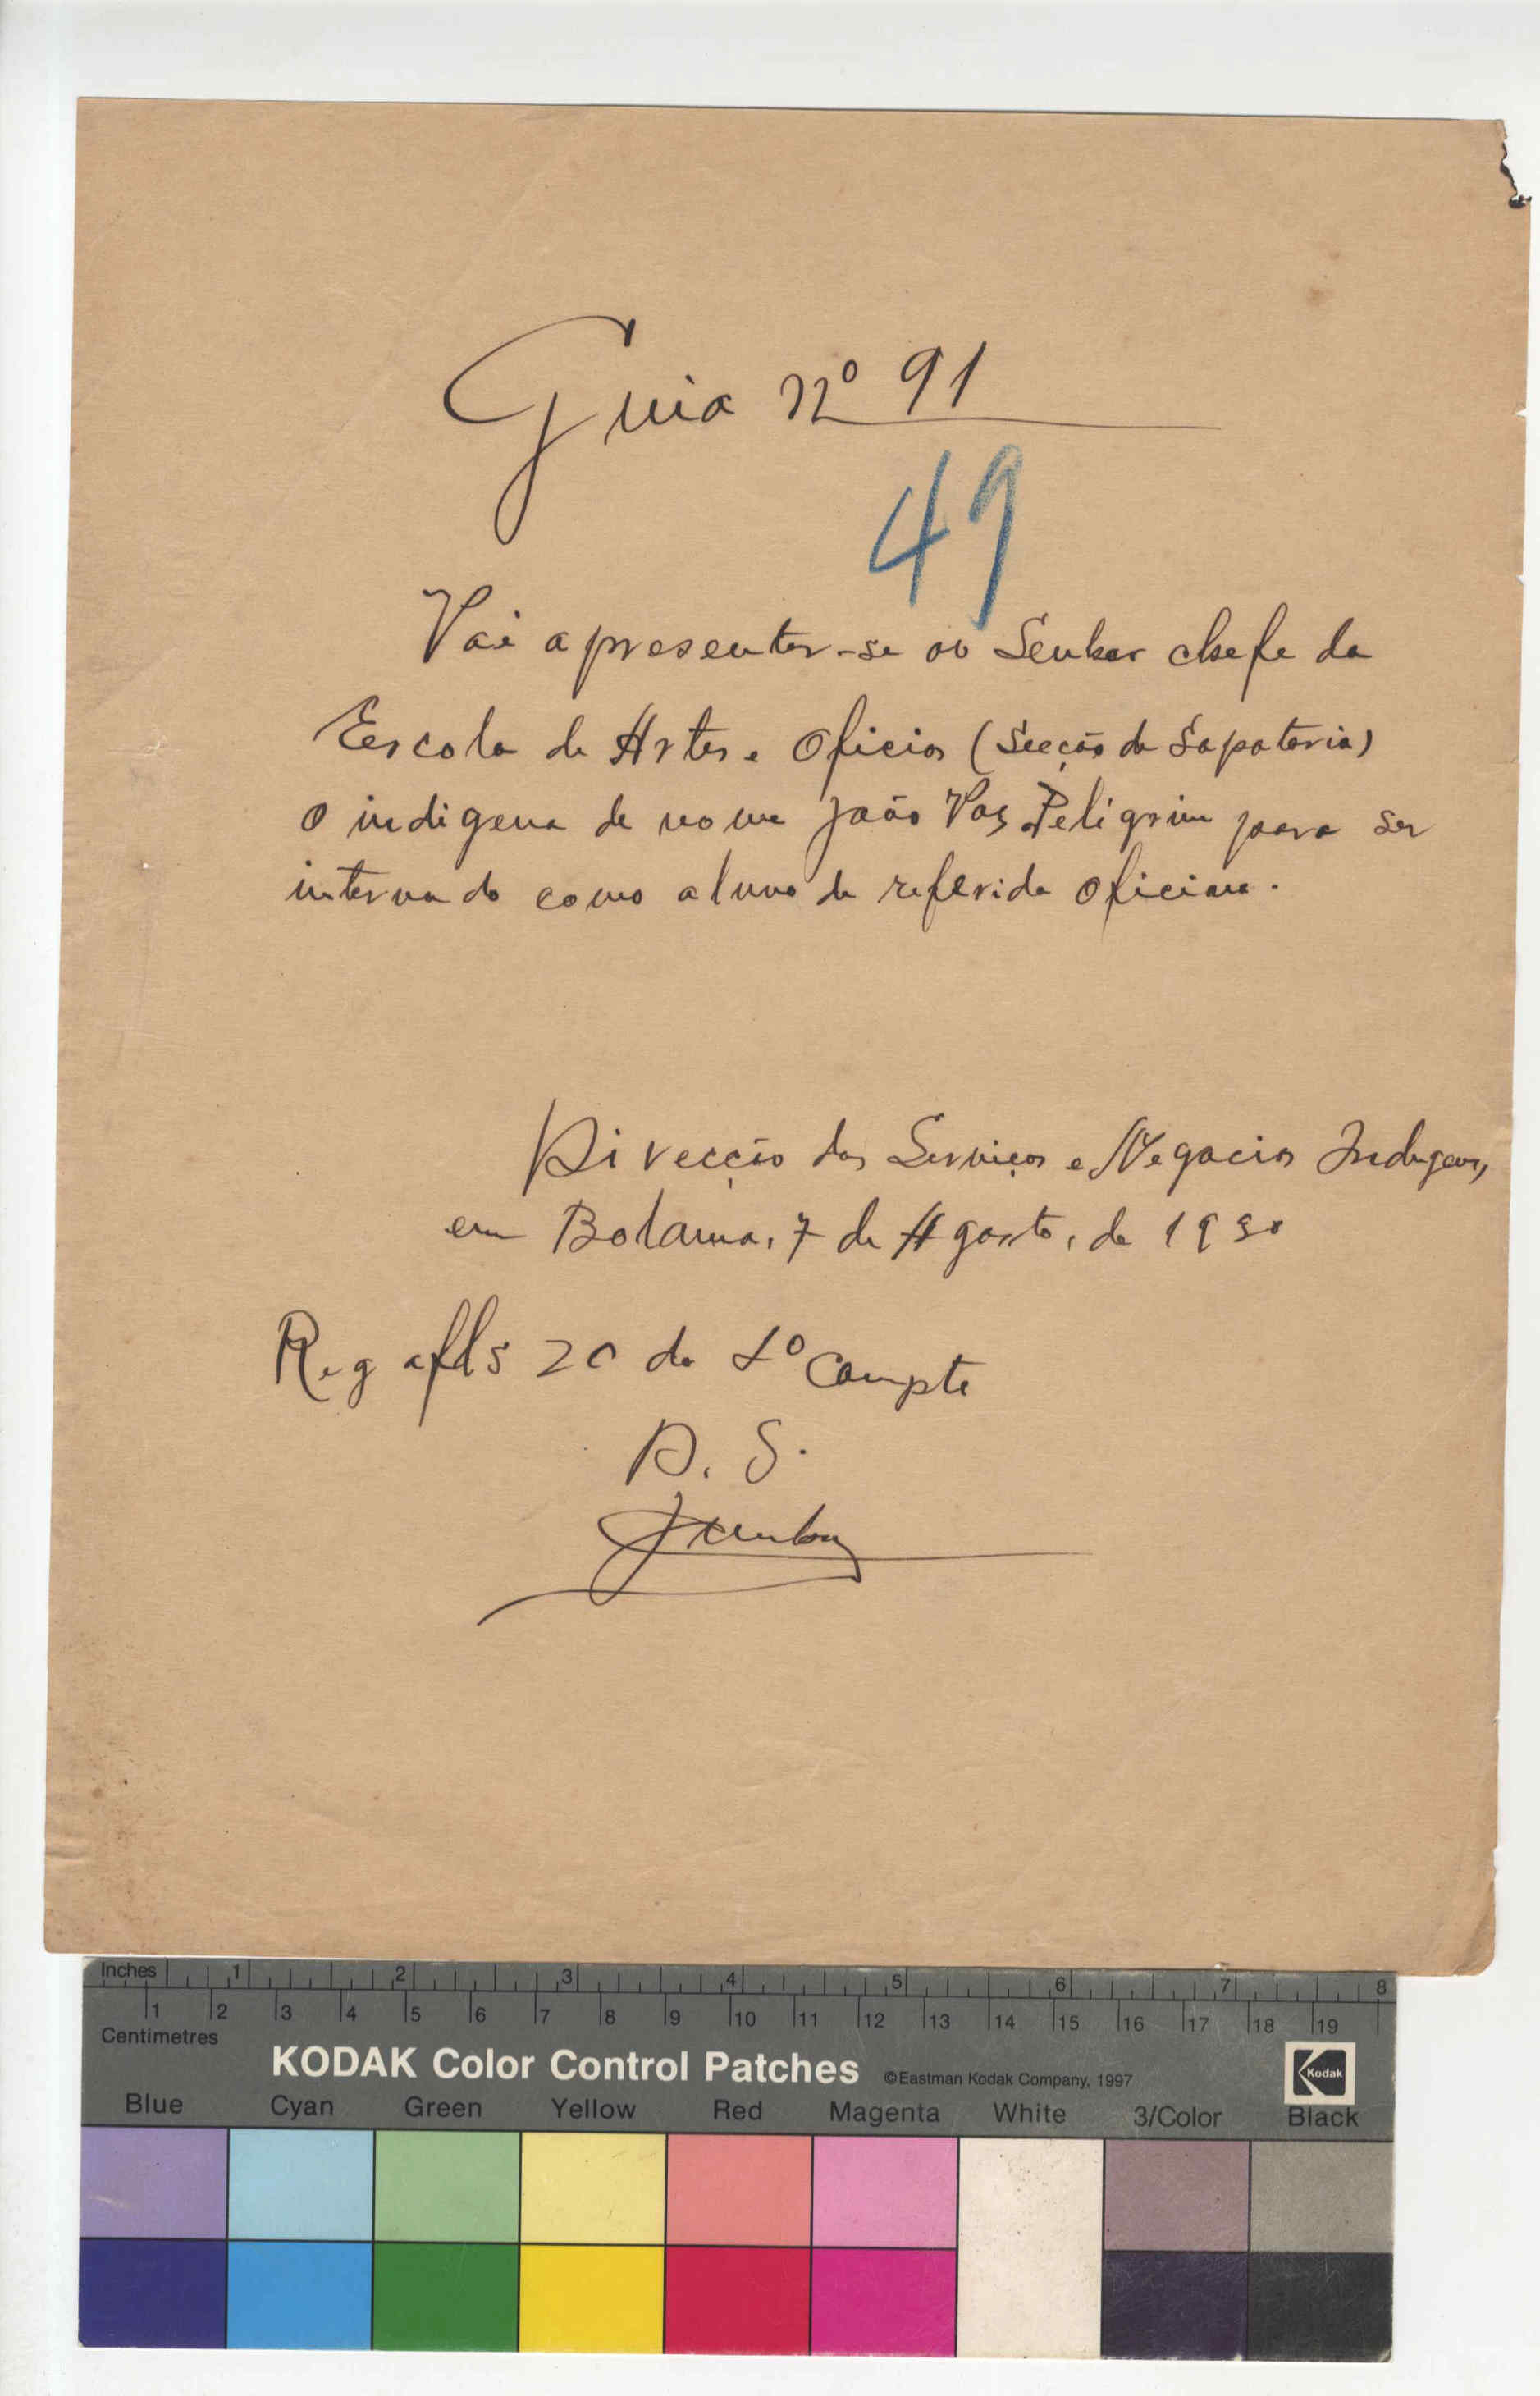 Guia nº 91
49
Vai apresentar-se ao Senhor chefe da
Escola de Artes e Oficios (Secção de Sapataria)
o indigena de nome João Vaz Peligrim para ser
internado como aluno da referida oficina.
Direcção dos Serviços e Negocios Indigenas,
em Bolama, 7 de Agosto, de 1930
Reg afls 20 do Lº Compte
D. S.
Inches 1 2 3 4 5 6 7 8
1 2 3 4 5 6 7 8 9 10 11 12 13 14 15 16 17 18 19
Centimetres
KODAK Color Control Patches ©Eastman Kodak Company, 1997 Kodak
Blue Cyan Green Yellow Red Magenta White 3/Color Black